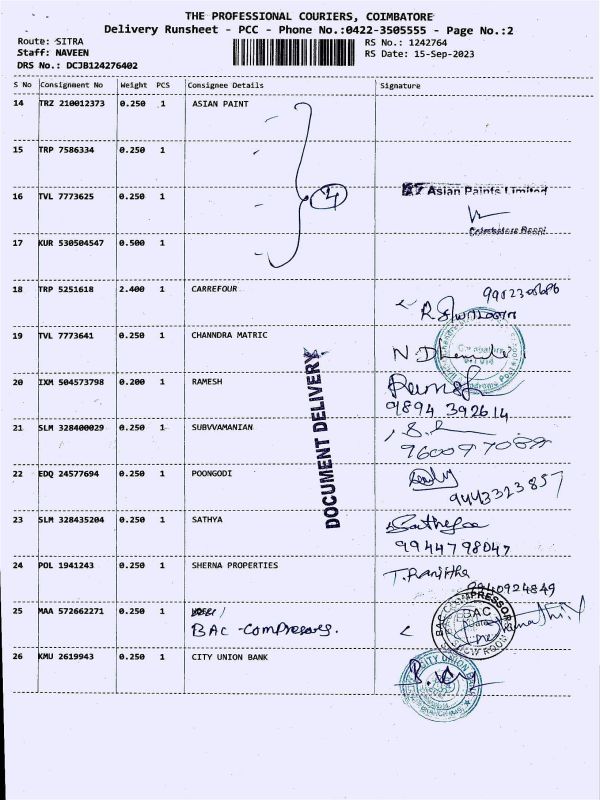 THE PROFESSIONAL COURIERS, COIMBATORE
Delivery Runsheet - PCC - Phone No.:0422-3505555 - Page No.:2
Route: SITRA
Staff: NAVEEN
DRS No.: DCJB124276402
RS No.: 1242764
RS Date: 15-Sep-2023
S No Consignment No Weight PCS Consignee Details Signature
14 TRZ 210012373 0.250 1 ASIAN PAINT
15 TRP 7586334 0.250 1
16 TVL 7773625 0.250 1 4 Asian Paints Limited
17 KUR 530504547 0.500 1
18 TRP 5251618 2.400 1 CARREFOUR
19 TVL 7773641 0.250 1 CHANNDRA MATRIC
20 IXM 504573798 0.200 1 RAMESH
9894 392614
21 SLM 328400029 0.250 1 SUBVVAMANIAN
22 EDQ 24577694 0.250 1 POONGODI
9443323857
23 SLM 328435204 0.250 1 SATHYA
9944798047
24 POL 1941243 0.250 1 SHERNA PROPERTIES T. Ranjitha
9940924849
25 MAA 572662271 0.250 1
BAC - Compressors.
BAC
26 KMU 2619943 0.250 1 CITY UNION BANK
CITY UNION BANK
DOCUMENT DELIVERY